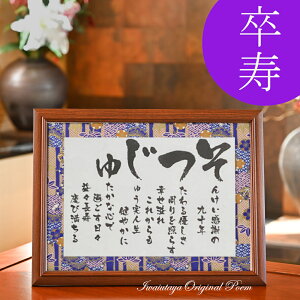 卒寿
そつじゅ
んけい感謝の
九十年
たわる優しさ
周りを照らす
幸せ溢れ
これからも
ゅう実人生
健やかに
たかな心で
過ごす日々
益々長寿
慶び満ちる
Iwaiutaya Original Poem